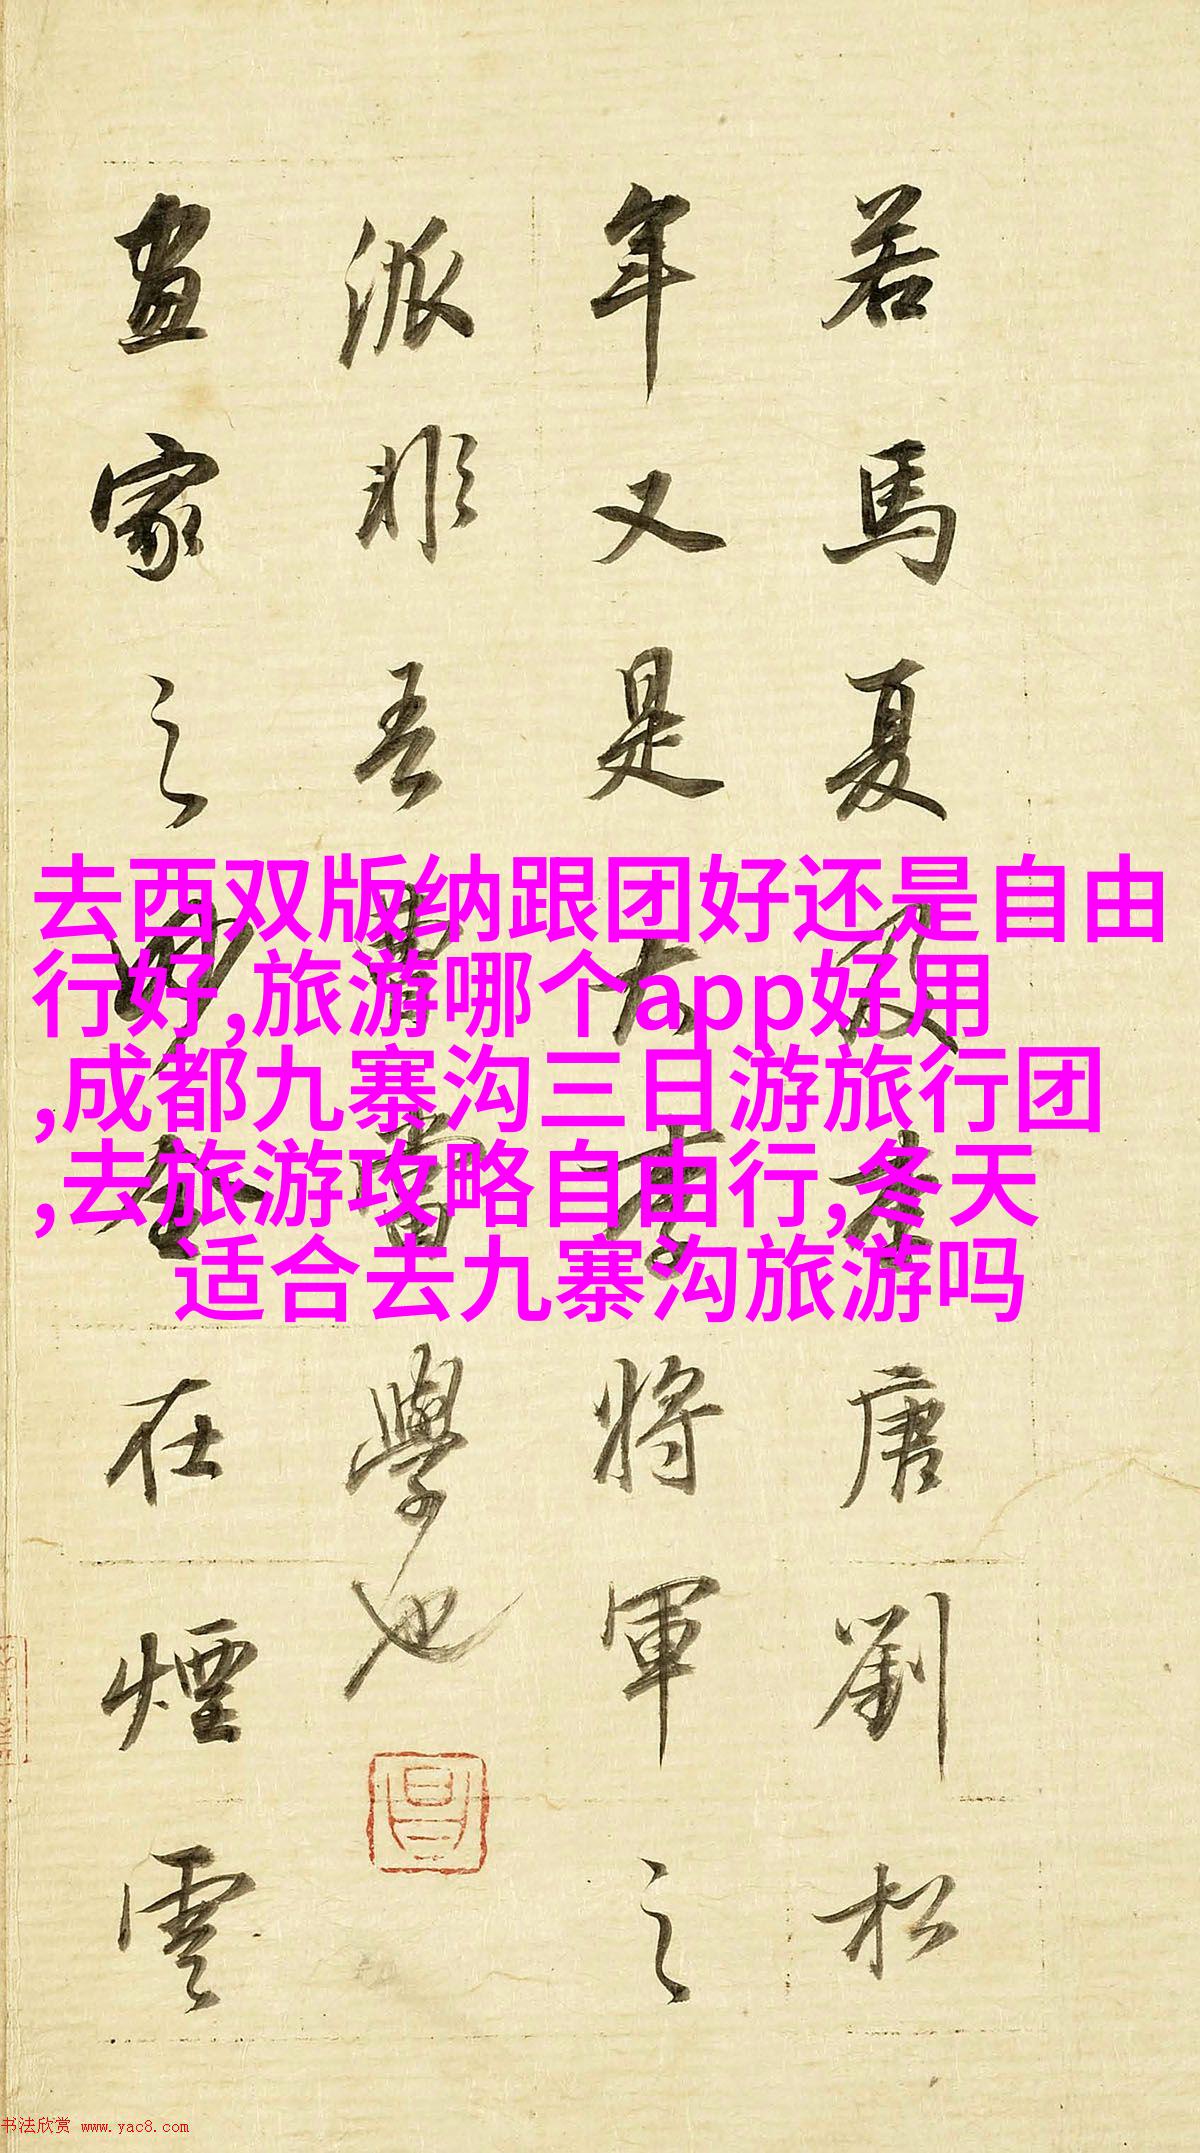 若馬夏及李唐劉松
年又是大李將軍之
派非吾曹當學也
畫家之妙全在煙雲
去西双版纳跟团好还是自由
行好,旅游哪个app好用
,成都九寨沟三日游旅行团
,去旅游攻略自由行,冬天
适合去九寨沟旅游吗
书法欣赏 www.yac8.com